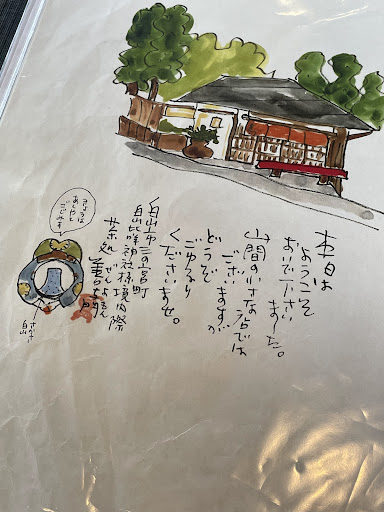 本日は
ようこそ
おいで下さい
ました。
山間の小さな店では
ござい
ますが
どうぞ
ごゆるり
くださいませ。
白山市三の宮町
白山比咩神社様境内際
茶処
ぜんよもん